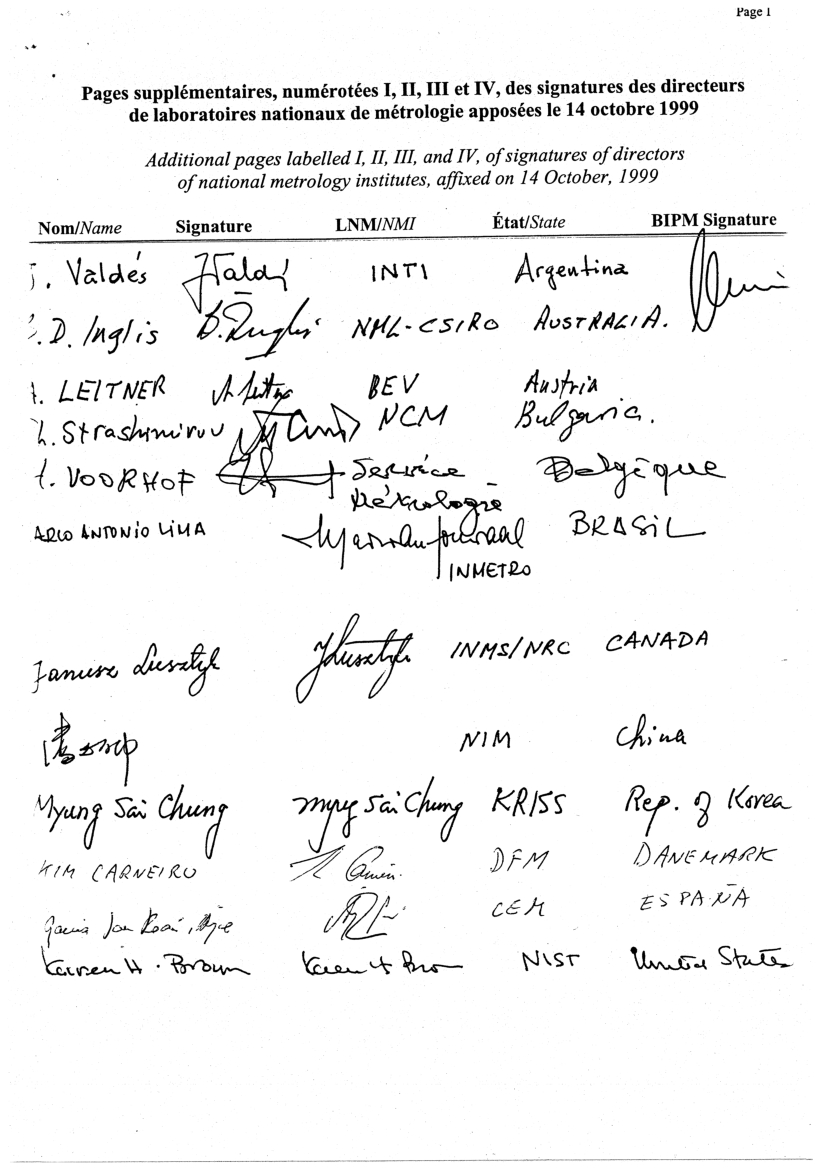 Page 1
Pages supplémentaires, numérotées I, II, III et IV, des signatures des directeurs
de laboratoires nationaux de métrologie apposées le 14 octobre 1999
Additional pages labelled I, II, III, and IV, of signatures of directors
of national metrology institutes, affixed on 14 October, 1999
Nom/Name Signature LNM/NMI État/State BIPM Signature
. Valdés JValdés INTI Argentina
. D. Inglis B. Inglis NML-CSIRO AUSTRALIA.
. LEITNER BEV Austria
. Strashimirov NCM Bulgaria.
. VOORHOF Service Belgique
Métrologie
ARCO ANTONIO LIMA BRASIL
INMETRO
Janusz Lusztyk JLusztyk INMS/NRC CANADA
NIM China
Myung Sai Chung Myung Sai Chung KRISS Rep. of Korea
KIM CARNEIRO DFM DANEMARK
CEM ESPAÑA
Karen H. Brown Karen H Brown NIST United States